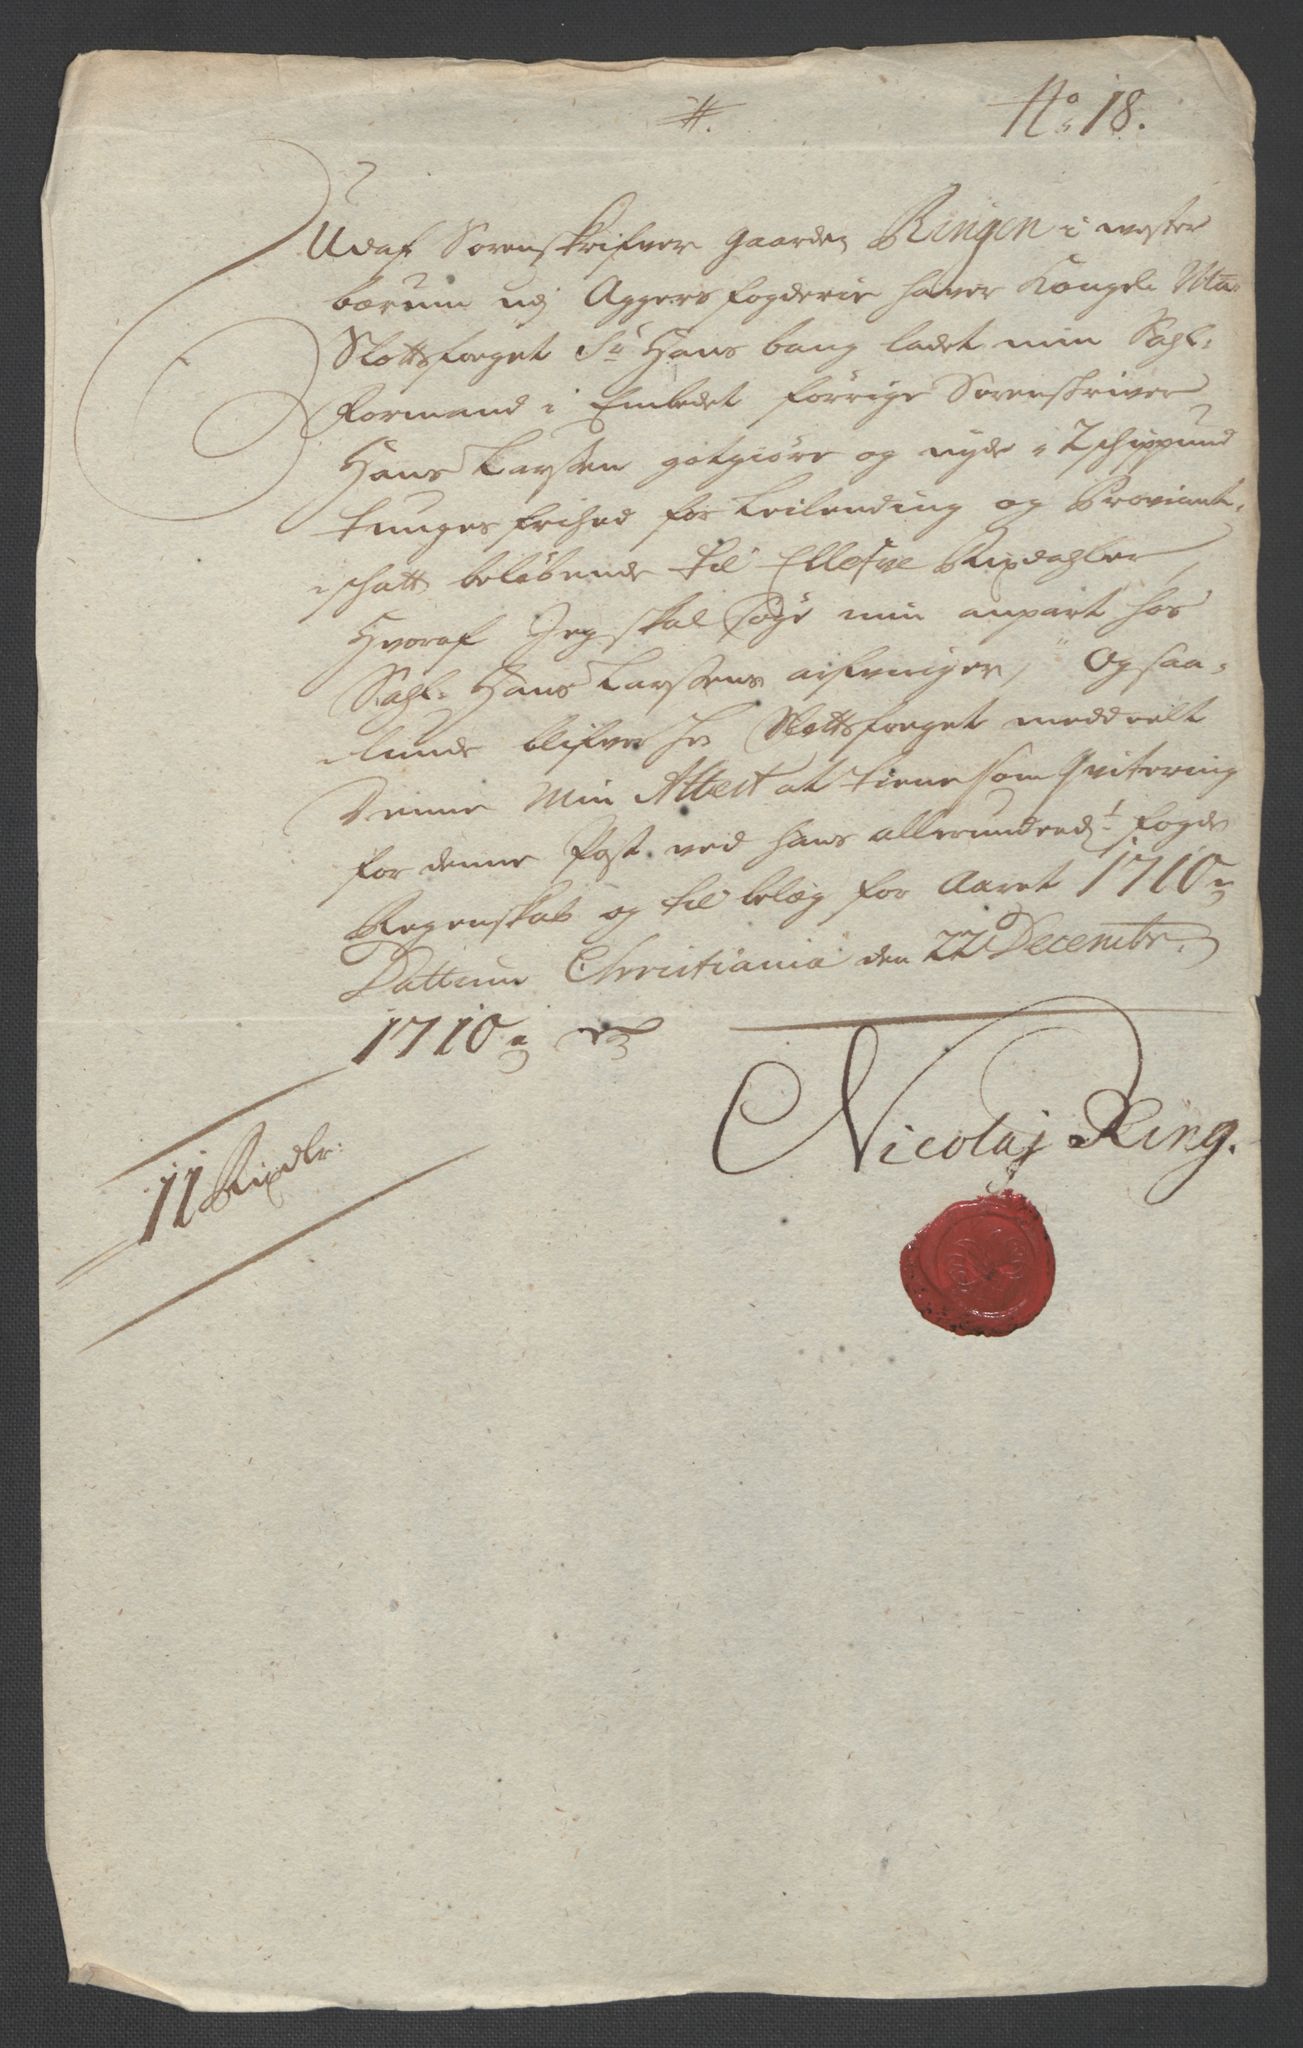 No 18.
Udaf Sorenskrifver gaarden Ringen i wester
bærum udj Aggers fogderie haver Kongl: Ma:
Slottsfoeget Sr Hans bang ladet min Sahl:
Formand i Embedet förrige Sorenskriver
Hans Larssen gotgiöre og nyde 2 schippund
tunges frihed for Leilending og Proviant-
schatt beløbende til Ellefve Rixdahler,
Hvoraf Jeg skal søge min anpart hos
Sahl: Hans Larssens arfvinger, Og saa-
lunde blifver Hr Slottsfoeget meddeelt
Denne Min Attest at tiene som Qvitering
for denne Post ved hans allerunded: fogde
Regenskab og til belæg for Aaret 1710
Dattum Christiania den 22 Decembr:
1710
Nicolaj Ring.
11 Rixdlr: